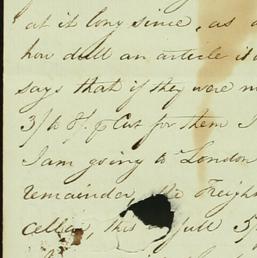 at it long since, as
how dull an article it
says that if they were
3/ to 8/ p Cwt for them I
I am going to London
remainder, the Freight
cellar, this full